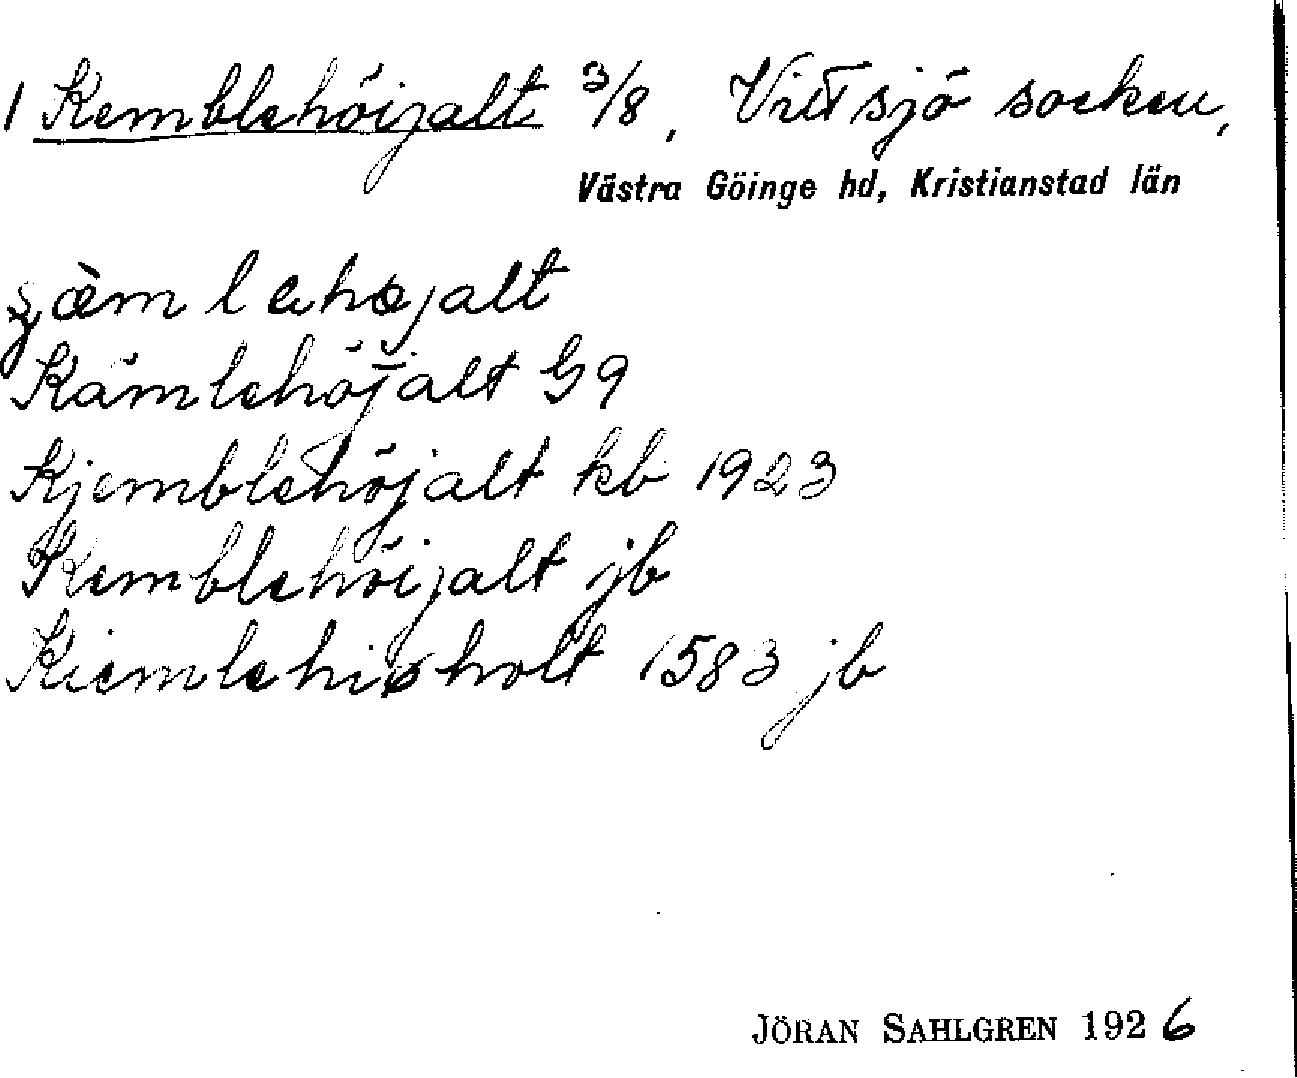 1 Kemblehöijalt 3/8, Vittsjö socken,
Västra Göinge hd, Kristianstad län
Kämlehöjalt G9
Kjemblehöjalt kb 1923
Kemblehöijalt jb
Kiemlehiøholt 1583 jb
JÖRAN SAHLGREN 1926